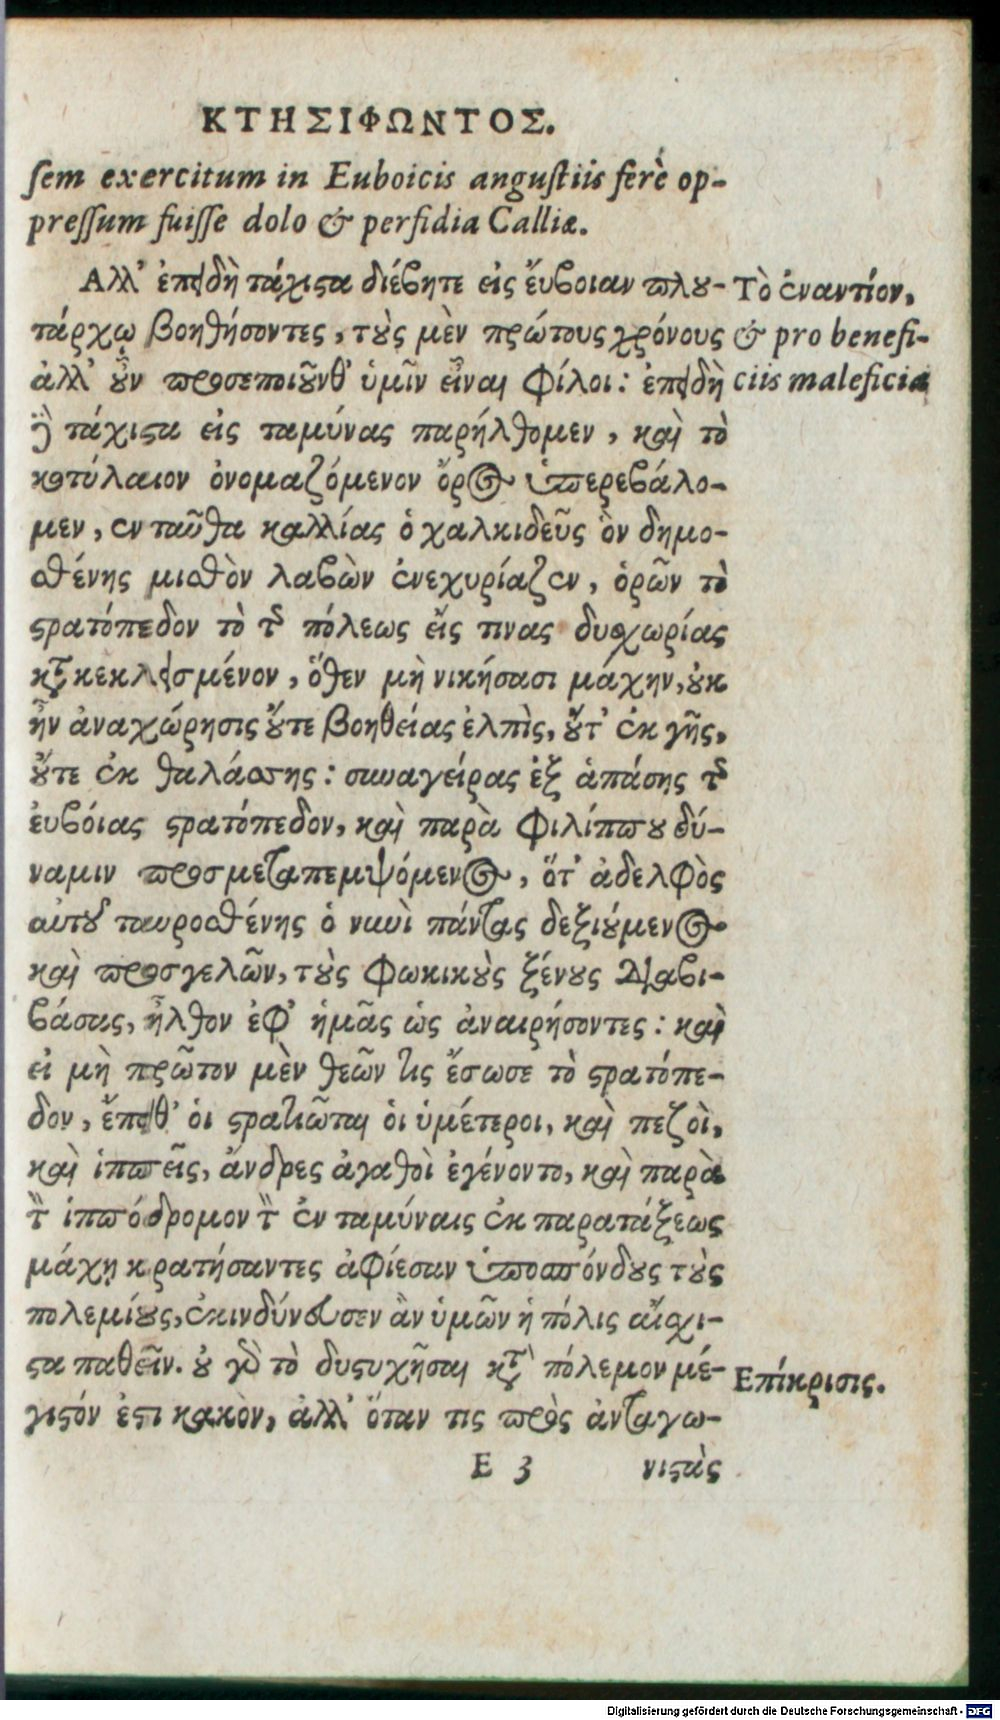 ΚΤΗΣΙΦΩΝΤΟΣ.
sem exercitum in Euboicis angustiis ferè op-
pressum fuisse dolo & perfidia Calliæ.
Αλλ' ἐπειδὴ τάχιστα διέβητε εἰς ἔυβοιαν πλου-
τάρχῳ βοηθήσοντες, τοὺς μὲν πρώτους χρόνους
ἀλλ' οὖν προσεποιοῦνθ' ὑμῖν εἶναι φίλοι: ἐπειδὴ
δὲ τάχιστα εἰς ταμύνας παρήλθομεν, καὶ τὸ
κοτύλαιον ὀνομαζόμενον ὄρος ὑπερεβάλο-
μεν, ἐν ταῦθα καλλίας ὁ χαλκιδεῦς ὃν δημο-
σθένης μισθὸν λαβὼν ἐνεκυρίαζεν, ὁρῶν τὸ
στρατόπεδον τὸ τῆς πόλεως εἴς τινας δυσχωρίας
κατακεκλεισμένον, ὅθεν μὴ νικήσασι μάχην, οὐκ
ἦν ἀναχώρησις οὔτε βοηθείας ἐλπὶς, οὔτ' ἐκ γῆς,
οὔτε ἐκ θαλάσσης: συναγείρας ἐξ ἁπάσης τῆς
ἐυβόιας στρατόπεδον, καὶ παρὰ Φιλίππου δύ-
ναμιν προσμεταπεμψόμενος, ὅτ' ἀδελφὸς
αὐτοῦ ταυροσθένης ὁ νυνὶ πάντας δεξιούμενος
καὶ προσγελῶν, τοὺς Φωκικοὺς ξένους διαβι-
βάσας, ἦλθον ἐφ' ἡμᾶς ὡς ἀναιρήσοντες: καὶ
εἰ μὴ πρῶτον μὲν θεῶν τις ἔσωσε τὸ στρατόπε-
δον, ἔπειθ' οἱ στρατιῶται οἱ ὑμέτεροι, καὶ πεζοὶ,
καὶ ἱππεῖς, ἄνδρες ἀγαθοὶ ἐγένοντο, καὶ παρὰ
τὸν ἱππόδρομον τὸν ἐν ταμύναις ἐκ παρατάξεως
μάχῃ κρατήσαντες ἀφίεσαν ὑποσπόνδους τοὺς
πολεμίους, ἐκινδύνευσεν ἂν ὑμῶν ἡ πόλις αἴσχι-
στα παθεῖν. οὐ γὰρ τὸ δυστυχῆσαι κατὰ πόλεμον μέ-
γιστόν ἐστι κακὸν, ἀλλ' ὅταν τις πρὸς ἀνταγω-
Ε 3 νιστὰς
Τὸ ἐναντίον,
& pro benefi-
ciis maleficia
Επίκρισις.
Digitalisierung gefördert durch die Deutsche Forschungsgemeinschaft - DFG